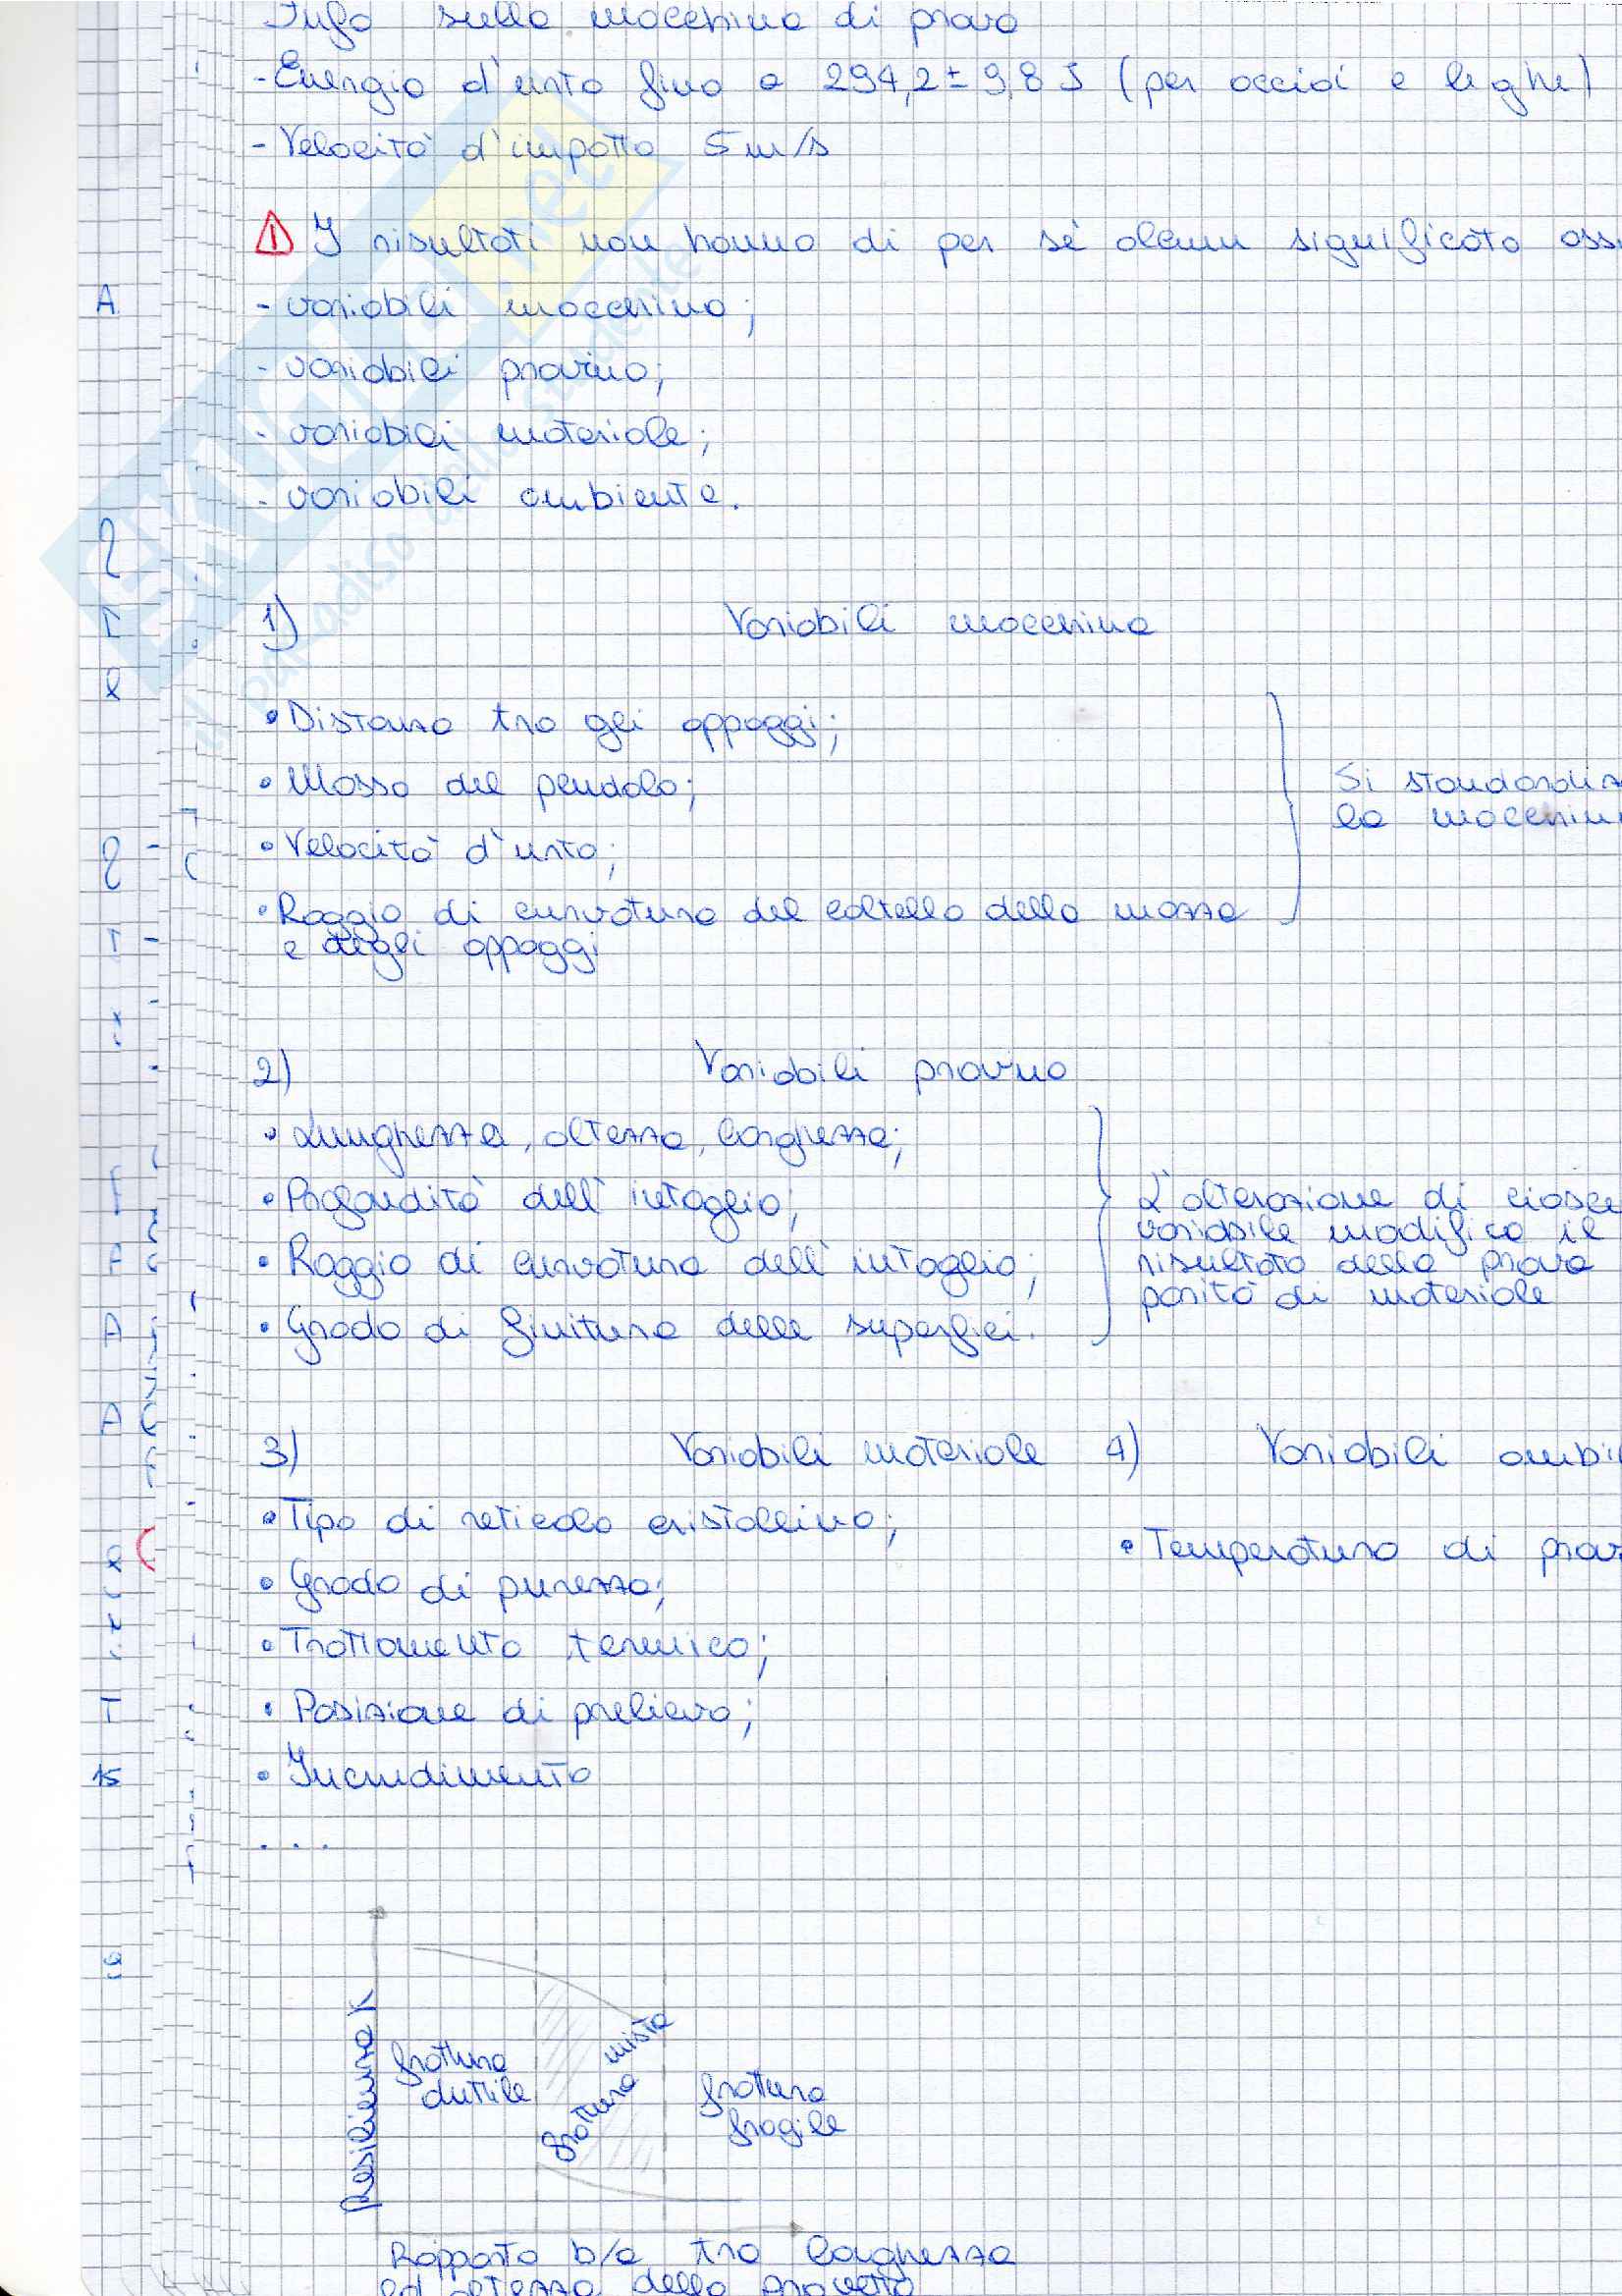 Info sulla macchina di prova
- Energia d'urto fino a 294,2 ± 9,8 J (per acciai e leghe)
- Velocità d'impatto 5 m/s
I risultati non hanno di per sé alcun significato ass
- variabili macchina;
- variabili provino;
- variabili materiale;
- variabili ambiente.
1) Variabili macchina
• Distanza tra gli appoggi;
• Massa del pendolo;
• Velocità d'urto;
• Raggio di curvatura del coltello della mazza
e degli appoggi
Si standardizz
la macchin
2) Variabili provino
• Lunghezza, altezza, larghezza;
• Profondità dell'intaglio;
• Raggio di curvatura dell'intaglio;
• Grado di finitura delle superfici.
L'alterazione di ciasc
variabile modifica il
risultato della prova
parità di materiale
3) Variabili materiale
• Tipo di reticolo cristallino;
• Grado di purezza;
• Trattamento termico;
• Posizione di prelievo;
• Incrudimento
...
4) Variabili ambi
• Temperatura di prov
Resilienza K
frattura
duttile
frattura mista
frattura
fragile
Rapporto b/a tra larghezza
ed altezza della provetta
SKUOLA.net
il paradiso dello studente